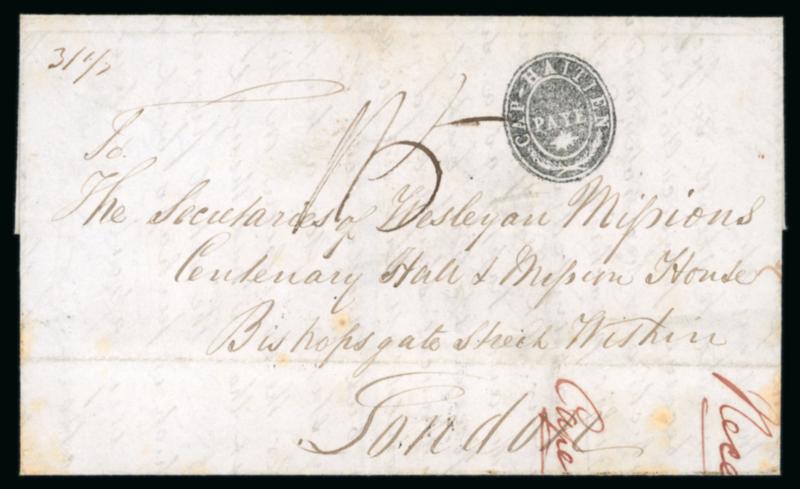 CAP-HAITIEN
PAYE
To
The Secretaries of Wesleyan Missions
Centenary Hall & Mission House
Bishopsgate Street Within
London